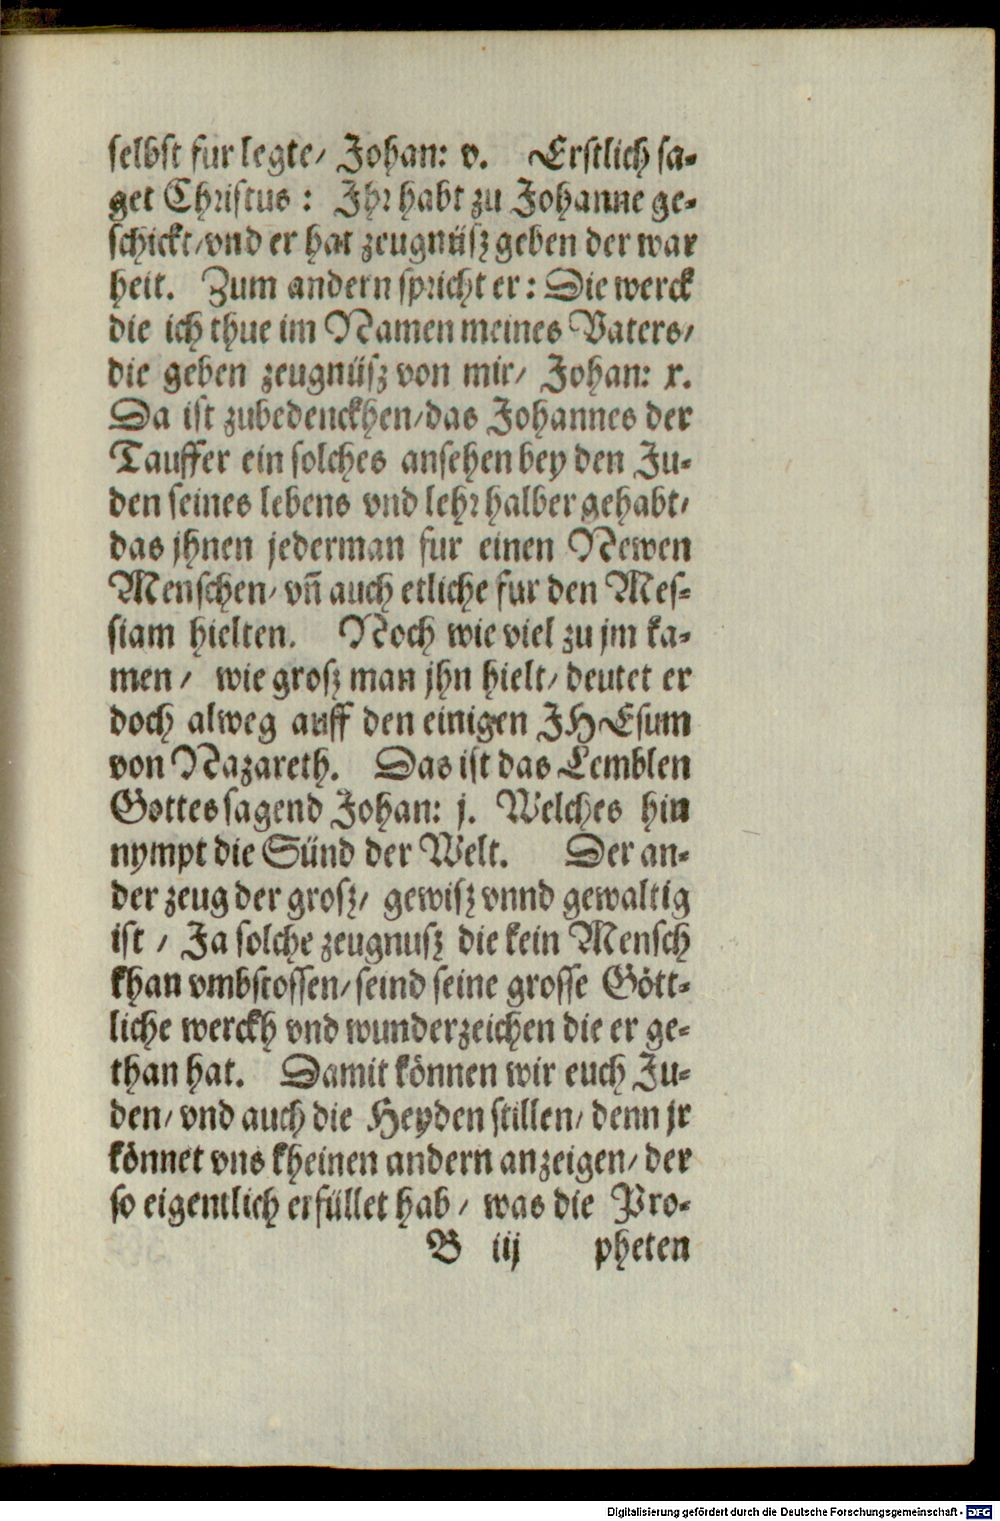 selbst fur legte/ Johan: v. Erstlich sa-
get Christus: Ihr habt zu Johanne ge-
schickt/vnd er hat zeugnüsz geben der war
heit. Zum andern spricht er: Die werck
die ich thue im Namen meines Vaters/
die geben zeugnüsz von mir/ Johan: x.
Da ist zubedenckhen/das Johannes der
Tauffer ein solches ansehen bey den Ju-
den seines lebens vnd lehr halber gehabt/
das jhnen jederman fur einen Newen
Menschen/ vñ auch etliche fur den Mes-
siam hielten. Noch wie viel zu jm ka-
men/ wie grosz man jhn hielt/ deutet er
doch alweg auff den einigen JHEsum
von Nazareth. Das ist das Lemblen
Gottes sagend Johan: j. Welches hin
nympt die Sünd der Welt. Der an-
der zeug der grosz/ gewisz vnnd gewaltig
ist / Ja solche zeugnusz die kein Mensch
khan vmbstossen/ seind seine grosse Gött-
liche werckh vnd wunderzeichen die er ge-
than hat. Damit können wir euch Ju-
den/ vnd auch die Heyden stillen/ denn jr
könnet vns kheinen andern anzeigen/ der
so eigentlich erfüllet hab/ was die Pro-
B iij pheten
Digitalisierung gefördert durch die Deutsche Forschungsgemeinschaft - DFG